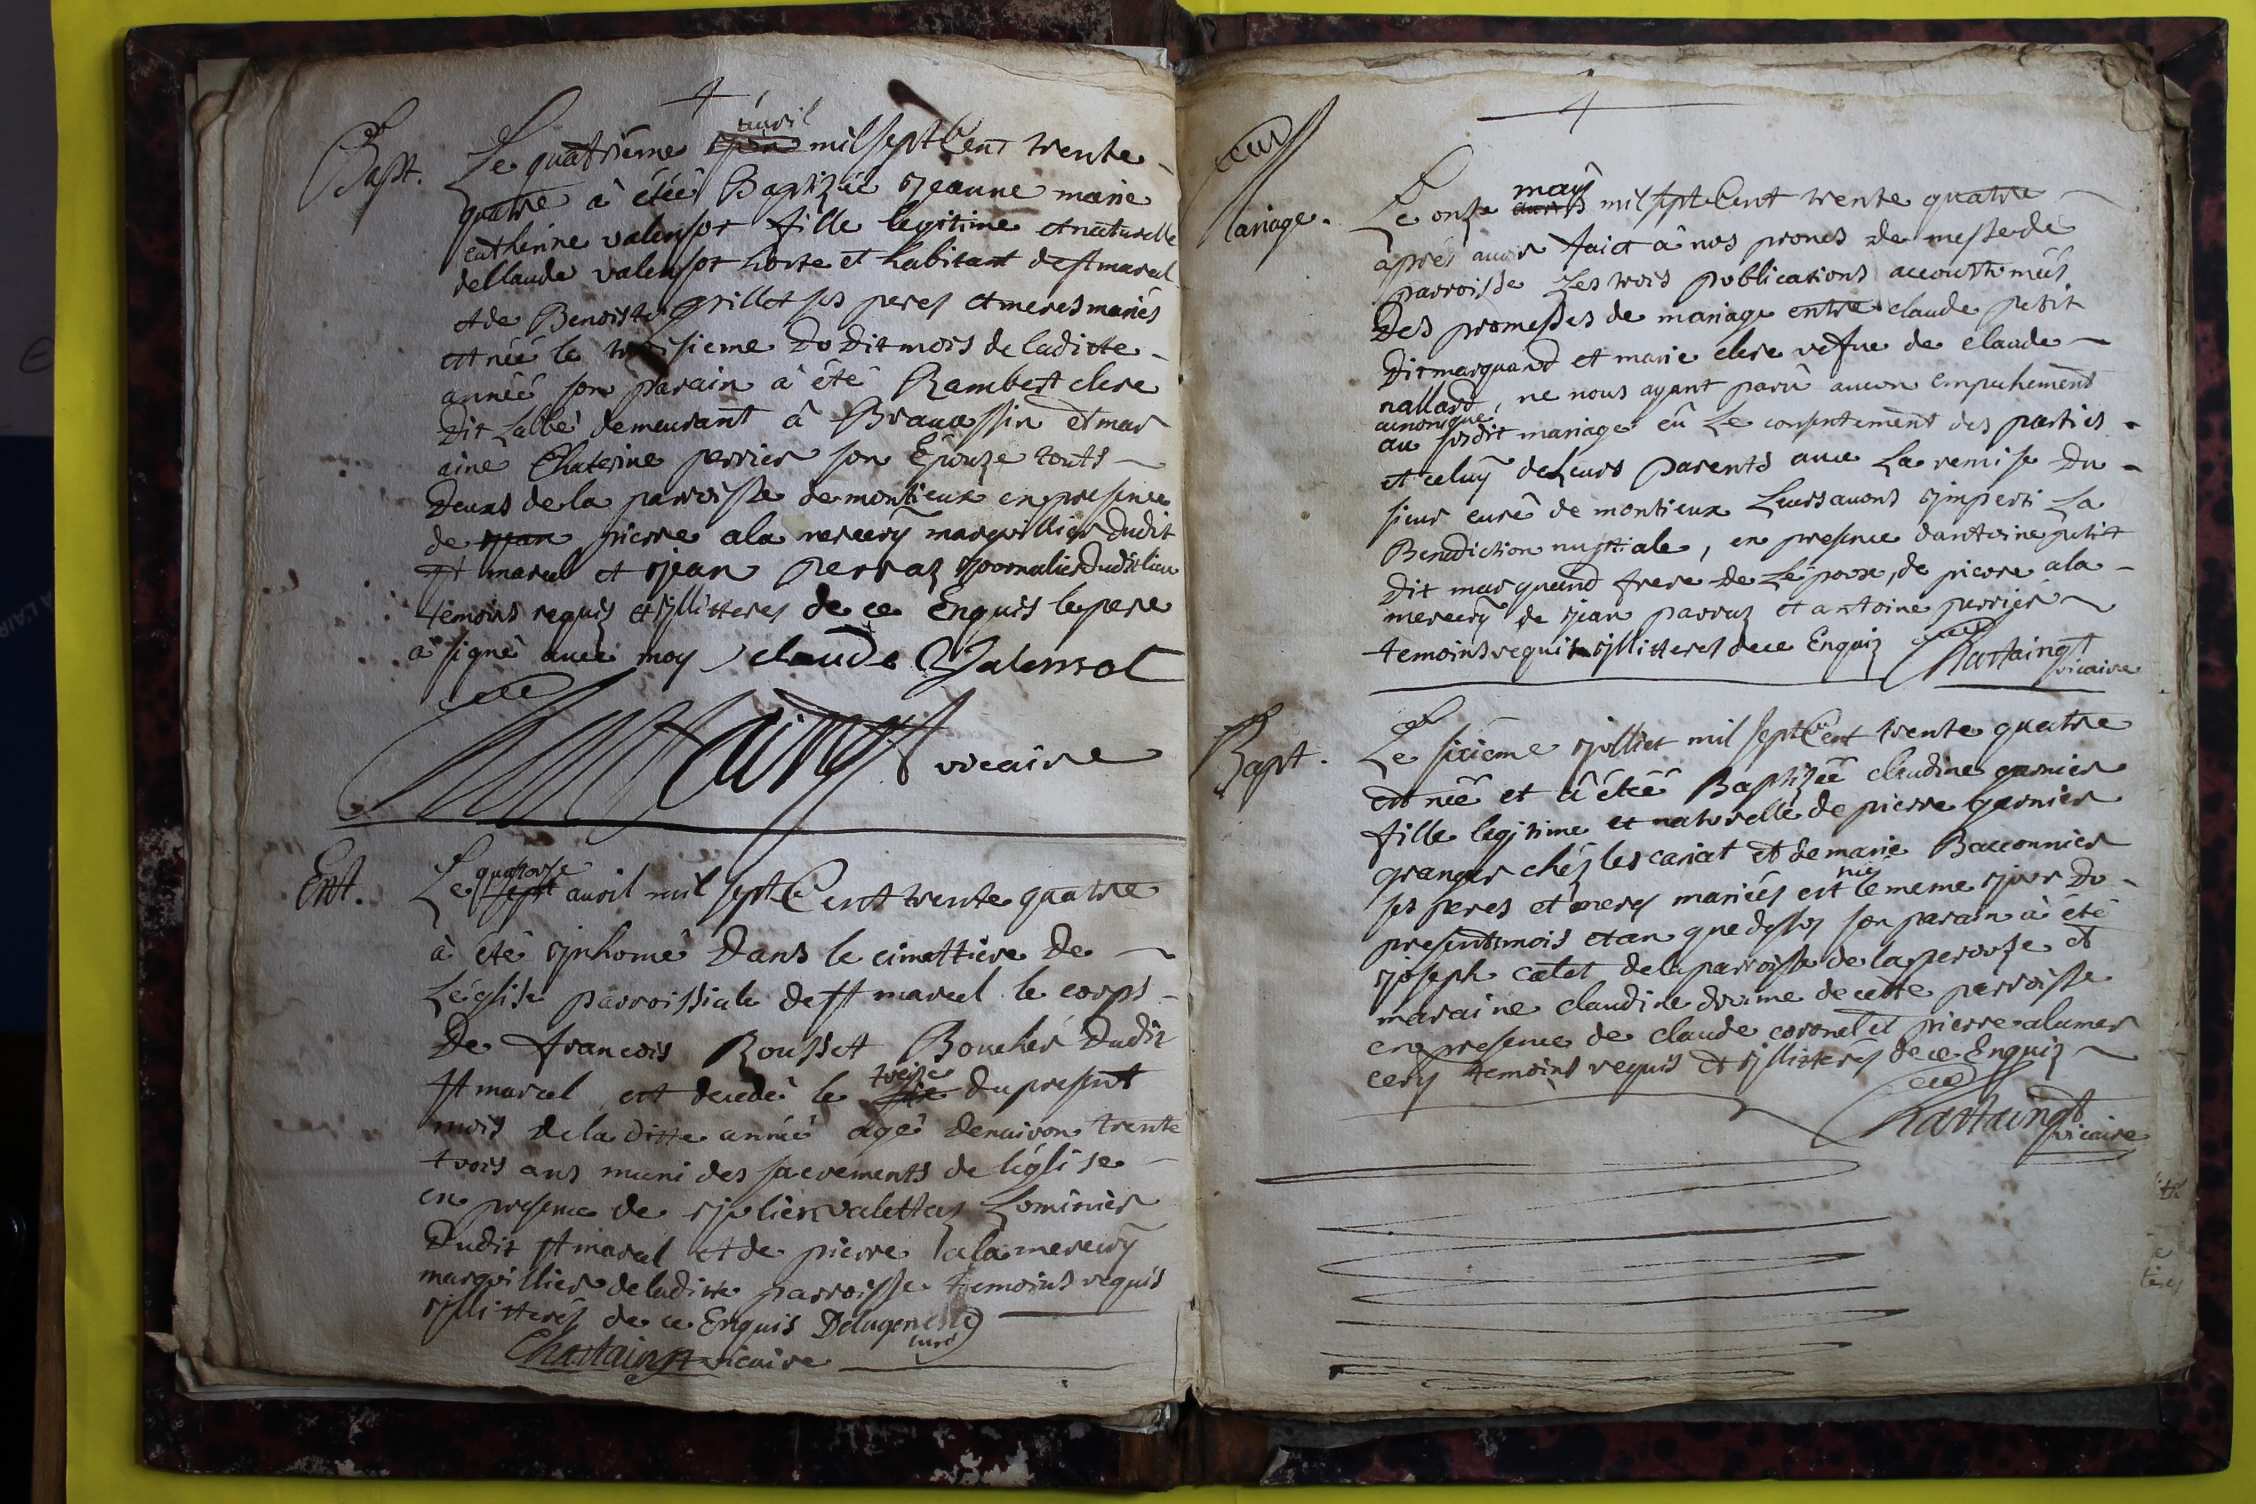 Bapt.
Le quatriéme avril mil sept Cent trente
quatre à étéé Baptizéé Jeanne marie
catherine valensot fille legitime et naturelle
de Claude valensot hoste et habitant de st marcel
et de Benoiste Grillet ses peres et meres mariés
et néé le troisieme du dit mois de la dicte
annéé son parain à été Rambert clere
dit Labbé demeurant à Braucassin et mar
aine Chaterine perrier son Épouze touts
deuxs de la parroisse de montieux en presence
de jean pierre ala mercery marguillier dudit
st marcel et jean perraz journalier dudit lieu
temoins requis et jllitteres de ce Enquis le pere
à signé avec moy claude Valensot
Chastaingt vicaire
Ent.
Le quatorze sept avril mil sept Cent trente quatre
à été jnhomé dans le cimettiere de
L'église parroissiale de st marcel le corps
De francois Rousset Boucher dudit
st marcel, est decedé le treize six du present
mois de la ditte année agé denviron trente
trois ans muni des sacrements de l'église
en presence de julien valettaz Lominier
dudit st marcel et de pierre ala mercery
marguillier de ladite parroisse temoins requis
jllitterés de ce Enquis Delageneste
curé
Chastaingt vicaire
Mariage.
Le onze may avril mil sept Cent trente quatre
aprés avoir faict à nos prones de messe de
parroisse Les trois publications accoustuméés
Des promesses de mariage entre claude petit
dit marquand et marie clere vefue de claude
nallard, ne nous ayant parû aucun empechement
canonique
au susdit mariage eû Le consentement des parties
et celuy de Leurs parents avec La remise du
sieur curé de montieux Leurs avons jmparti La
Benediction nuptiale, en presence dantoine petit
dit marquand frere de Lépoux, de pierre ala
mercery de jean parraz et antoine perrier
temoins requis jllitteres de ce Enquiz Chastaingt
vicaire
Bapt.
Le sixiéme juilliet mil sept Cent trente quatre
est néé et à étéé Baptizéé claudine garnier
fille legitime et naturelle de pierre garnier
granger chéz les cariat et de marie Bacconnier
ses peres et meres mariés est née le meme jour du
present mois et an que dessus son parain à été
joseph catet de la parroisse de la perouze et
maraine claudine drume de cette parroisse
en presence de claude coronel et pierre alamer
cery temoins requis et jllitterés de ce Enquiz
Chastaingt
vicaire